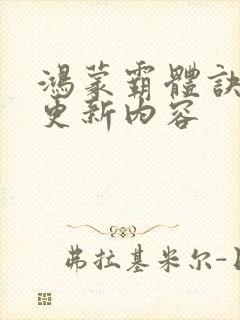 鴻蒙霸體訣
更新內容
弗拉基米尔-